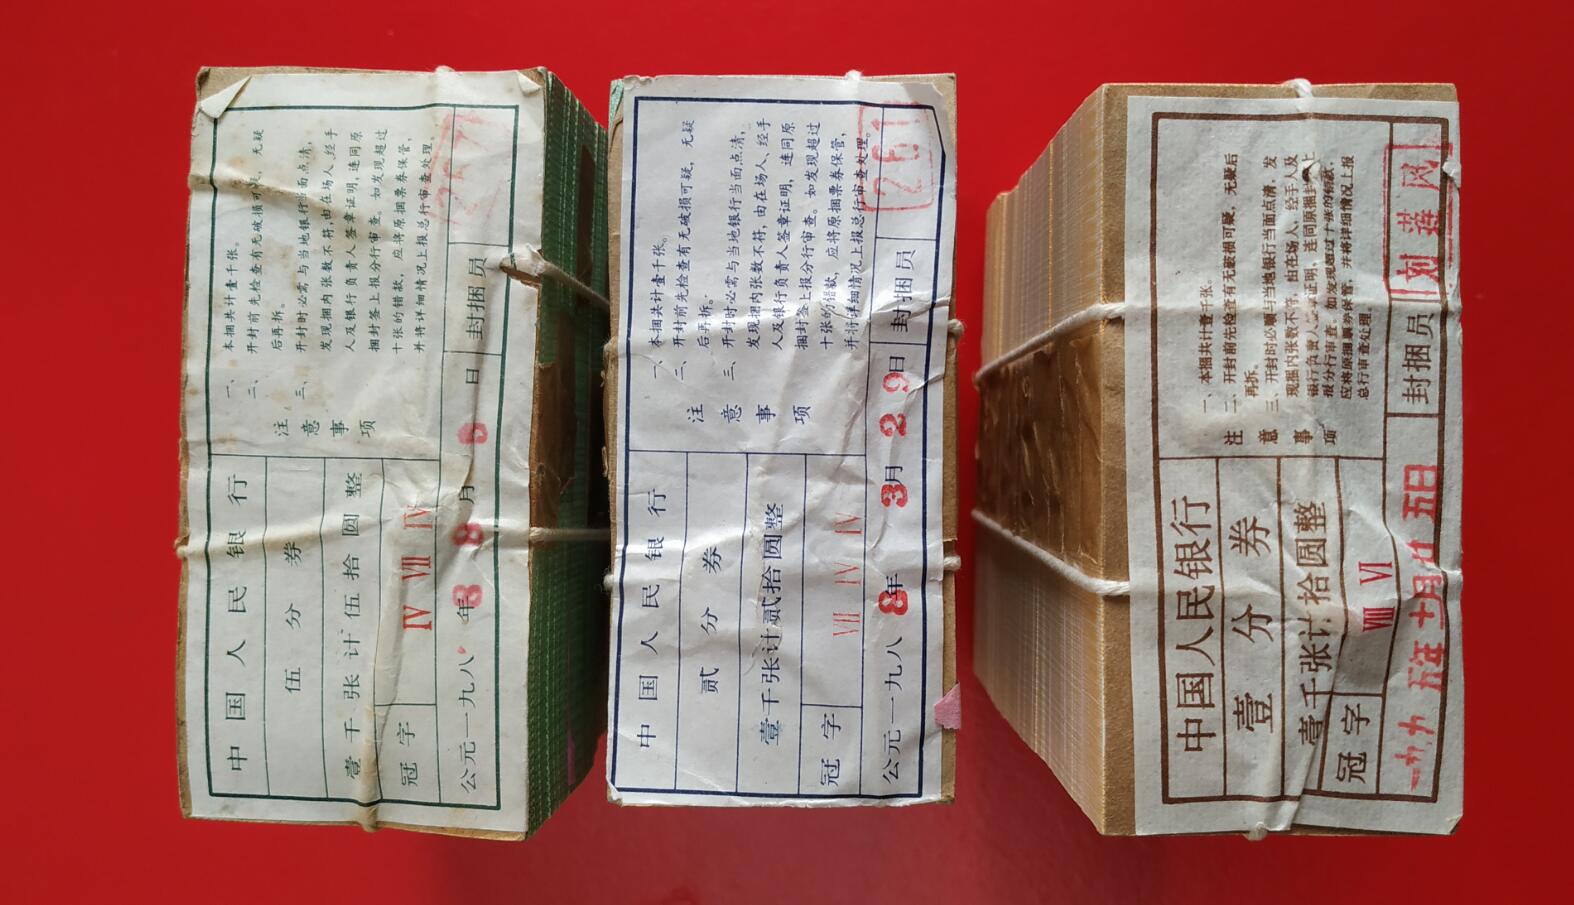 中国人民银行
伍分券
壹千张计伍拾圆整
冠字 IV VII IV
公元一九八8年9月 日
封捆员
注意事项
一、本捆共计壹千张。
二、开封前先检查有无破损可疑，无疑
后再拆。
三、开封时必需与当地银行当面点清，
发现捆内张数不符，由在场人、经手
人及银行负责人签章证明，连同原
捆封签上报分行审查。如发现超过
十张的错款，应将原捆票券保管，
并将详细情况上报总行审查处理。
中国人民银行
贰分券
壹千张计贰拾圆整
冠字 VII IV IV
公元一九八8年3月29日
封捆员 261
注意事项
一、本捆共计壹千张。
二、开封前先检查有无破损可疑，无疑
后再拆。
三、开封时必需与当地银行当面点清，
发现捆内张数不符，由在场人、经手
人及银行负责人签章证明，连同原
捆封签上报分行审查。如发现超过
十张的错款，应将原捆票券保管，
并将详细情况上报总行审查处理。
中国人民银行
壹分券
壹千张计拾圆整
冠字 VIII VI
一九九 年七月廿五日
封捆员 刘莲凤
注意事项
一、本捆共计壹千张。
二、开封前先检查有无破损可疑，无疑后
再拆。
三、开封时必须与当地银行当面点清，发
现捆内张数不符，由在场人、经手人及
银行负责人签章证明，连同原捆封签上
报分行审查，如发现超过十张的错款，
应将原捆票券保管，并将详细情况上报
总行审查处理。